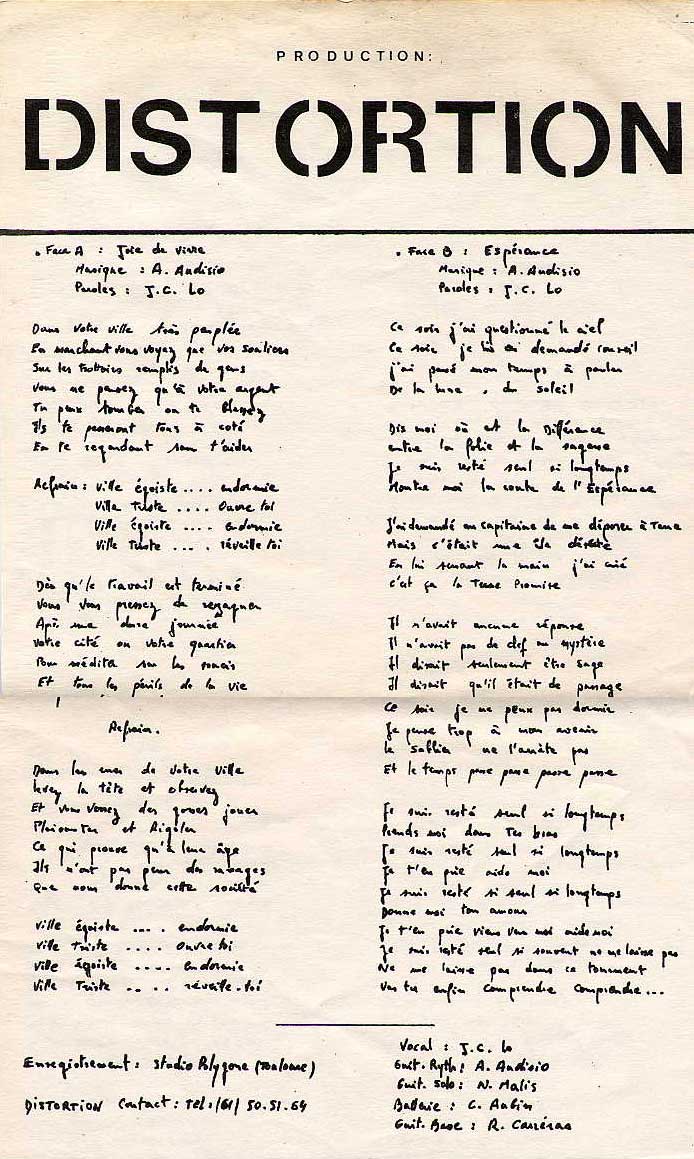 PRODUCTION:
DISTORTION
. Face A : Joie de vivre
Musique : A. Audisio
Paroles : J.C. Lo
Dans votre ville très peuplée
En marchant vous voyez que vos souliers
Sur les trottoirs remplis de gens
Vous ne pensez qu'à votre argent
Tu peux tomber ou te blesser
Ils te passeront tous à coté
En te regardant sans t'aider
Refrain : Ville égoiste .... endormie
Ville Triste .... Ouvre toi
Ville Égoiste .... Endormie
Ville Triste .... réveille toi
Dès qu'le travail est terminé
Vous vous pressez de regagner
Après une dure journée
Votre cité ou votre quartier
Pour méditer sur les soucis
Et tous les périls de la vie
Refrain.
Dans les rues de votre ville
levez la tête et observez
Et vous verrez des gosses jouer
Plaisanter et Rigoler
Ce qui prouve qu'à leur âge
Ils n'ont pas peur des
Que nous donne cette société
Ville égoiste .... endormie
Ville Triste .... Ouvre toi
Ville égoiste .... Endormie
Ville Triste .... réveille-toi
. Face B : Espérance
Musique : A. Audisio
Paroles : J.C. Lo
Ce soir j'ai questionné le ciel
Ce soir je lui ai demandé conseil
J'ai passé mon temps à parler
De la lune, du soleil
Dis moi où est la Différence
entre la folie et la sagesse
Je suis resté seul si longtemps
Montre moi la route de l'Espérance
J'ai demandé au capitaine de me déposer à Terre
Mais c'était une île déserte
En lui serrant la main j'ai crié
c'est ça la Terre Promise
Il n'avait aucune réponse
Il n'avait pas de clef au mystère
Il disait seulement être sage
Il disait qu'il était de passage
Ce soir je ne peux pas dormir
Je pense trop à mon avenir
le Sablier ne l'arrête pas
Et le temps passe passe passe passe
Je suis resté seul si longtemps
Prends moi dans tes bras
Je suis resté seul si longtemps
Je t'en prie aide moi
Je suis resté si seul si longtemps
Donne moi ton amour
Je t'en prie viens vers moi aide moi
Je suis resté seul si souvent ne me laisse pas
Ne me laisse pas dans ce tourment
Vas tu enfin comprendre comprendre...
Enregistrement : Studio Polygone (Toulouse)
DISTORTION Contact : Tél : (61) 50.51.64
Vocal : J.C. Lo
Guit. Ryth : A. Audisio
Guit. Solo : N. Malis
Batterie : C. Aubin
Guit. Basse : R. Carréras